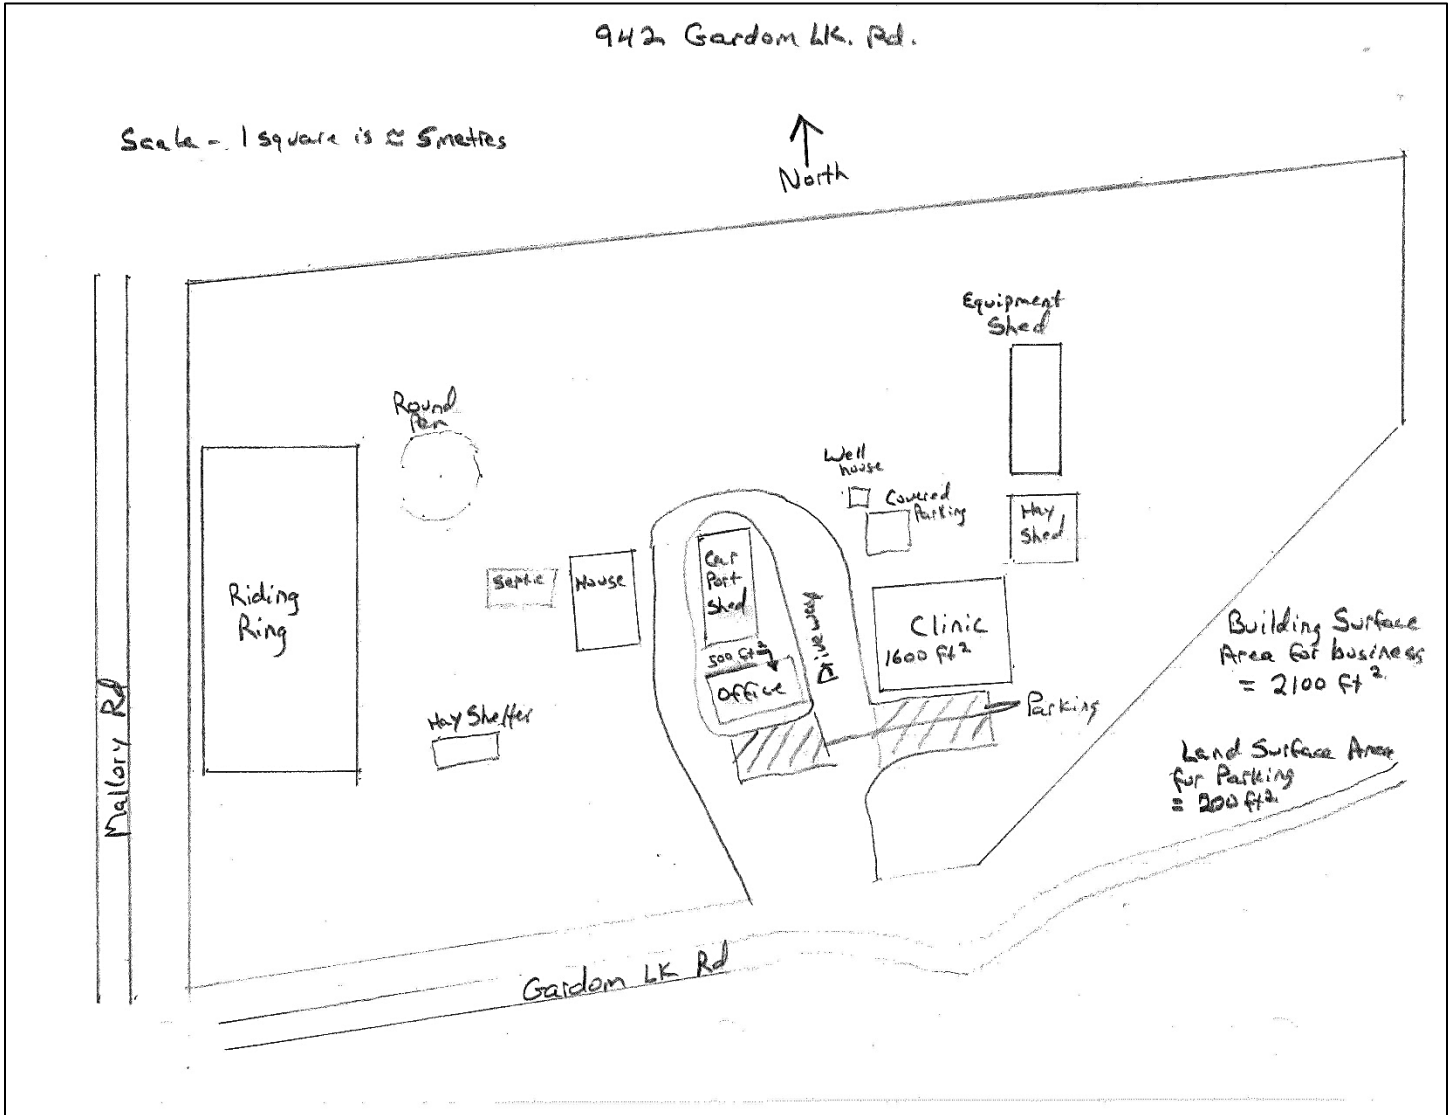 942 Gardom LK. Rd.
Scale - 1 square is ≈ 5 metres
North
Equipment
Shed
Round
Pen
Well
house
Covered
Parking
Hay
Shed
Riding
Ring
Septic
House
Car
Port
Shed
Driveway
Clinic
1600 ft²
500 ft²
Office
Parking
Building Surface
Area for business
= 2100 ft²
Hay Shelter
Land Surface Area
for Parking
= 200 ft²
Mallory Rd
Gardom LK Rd